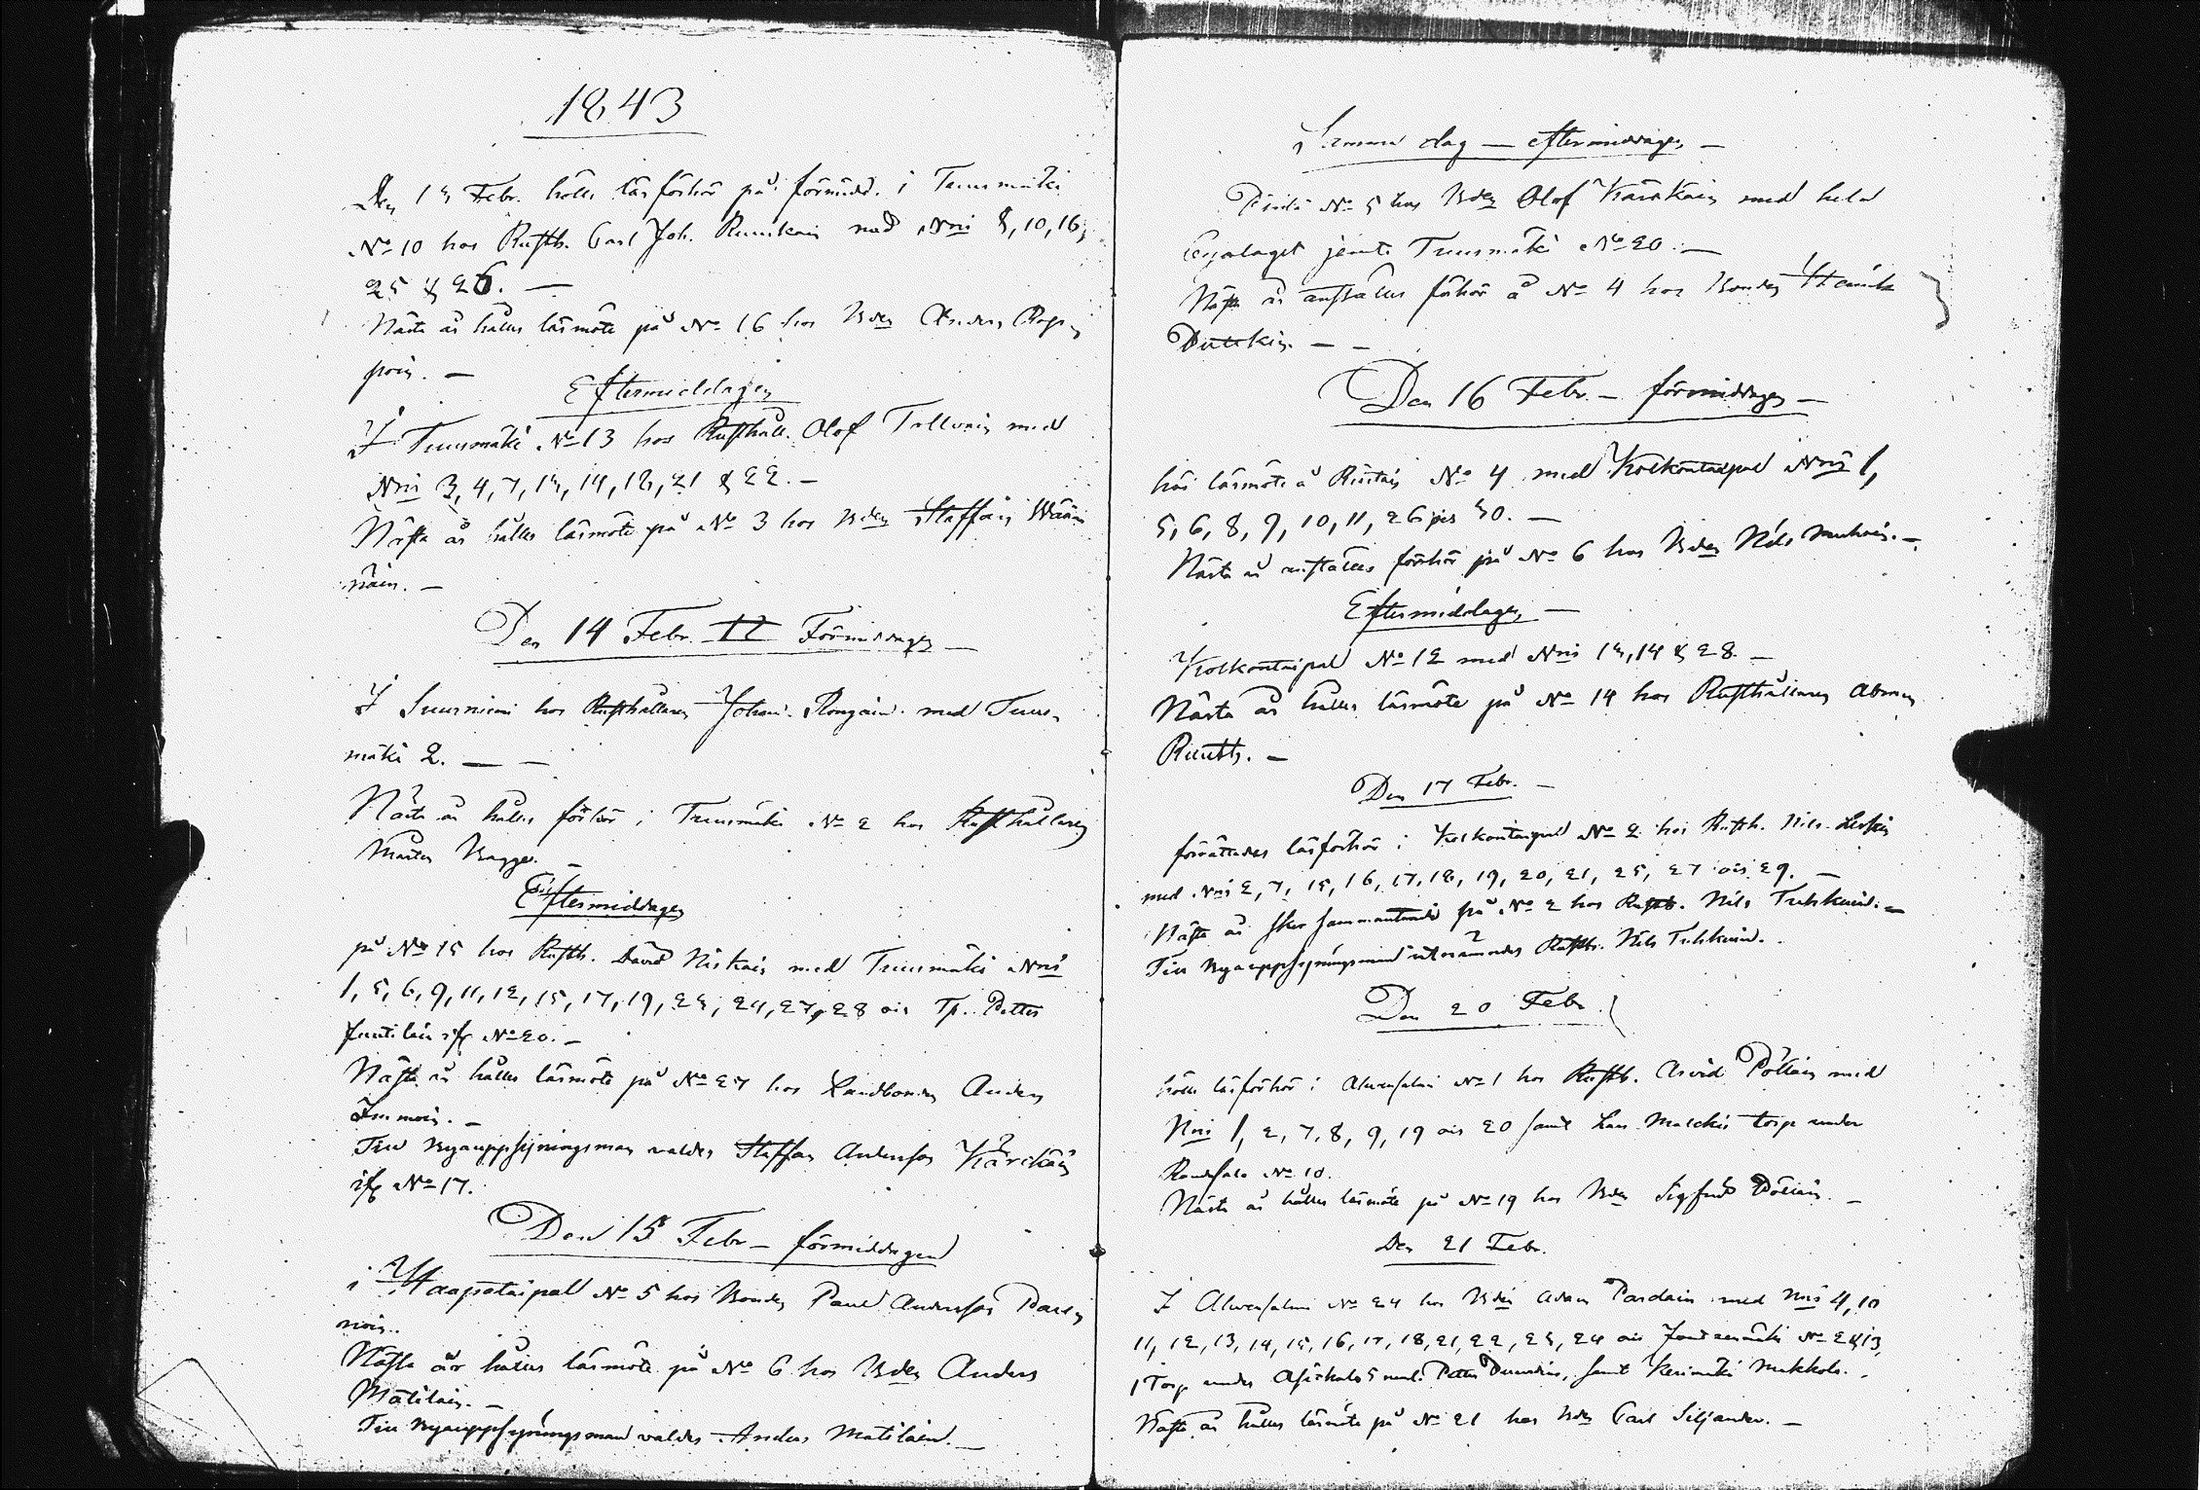 1843
Den 13 Febr. hölls läsförhör på förmidd. i Tuusmäki
No 10 hos Rusth. Carl Joh. Ruuskain med Nris 8, 10, 16,
25 & 26. —
Nästa år hålles läsmöte på No 16 hos Bden Anders
poin. —
Eftermiddagen
I Tuusmäki No 13 hos Rusthåll. Olof Tolluain med
Nris 3, 4, 7, 13, 14, 18, 21 & 22. —
Nästa år hålles läsmöte på No 3 hos Bden Staffan Wään
näin. —
Den 14 Febr. 12 Förmiddagen —
I Suurniemi hos Rusthållaren Johan Rongain med Tuus-
mäki 2. — —
Nästa år hålles förhör i Tuusmäki No 2 hos Rusthållaren
Mårten Bagge. —
Eftermiddagen
på No 15 hos Rusth. David Niskain med Tuusmäki Nris
1, 5, 6, 9, 11, 12, 15, 17, 19, 23, 24, 27, 28 ois Tp. Petter
No 20. —
Nästa år hålles läsmöte på No 27 hos Landbonden Anders
Immoin. —
Till Byauppsyningsman valdes Staffan Andersson Kärckäin
No 17.
Den 15 Febr — förmiddagen
i Haapataipal No 5 hos Bonden Paul Andersson Parsi
noin.
Nästa år hålles läsmöte på No 6 hos Bden Anders
Matilain. —
Till Byauppsyningsman valdes Anders Matilain. —
Samma dag — eftermiddagen —
No 5 hos Bden Olof Kärckäin med hela
Byalaget jemte Tuusmäki No 20. —
Nästa år anställes förhör å No 4 hos Bonden Henrik
— —
Den 16 Febr — förmiddagen —
hös läsmöte å No 4 med Kolkontaipal Nris 1,
5, 6, 8, 9, 10, 11, 26 30. —
Nästa år anställes förhör på No 6 hos Bden Nils Muhoin. —
Eftermiddagen —
Kolkontaipal No 12 med Nris 13, 14 & 28. —
Nästa år hålles läsmöte på No 14 hos Rusthållaren Abram
Ruuth. —
Den 17 Febr. —
förrättades läsförhör i Kolkontaipal No 2 hos Rusth. Nils
med Nris 2, 7, 15, 16, 17, 18, 19, 20, 21, 25, 27 ois 29. —
Nästa år sker sammanträde på No 2 hos Rusth. Nils Tuhkuin. —
Till Byauppsyningsman utnämndes Rusth. Nils Tuhkuin.
Den 20 Febr.
hölls läsförhör i Ahvensalmi No 1 hos Rusth. Arvid Pöllain med
Nris 1, 2, 7, 8, 9, 19 ois 20 samt Lars torp under
No 10.
Nästa år hålles läsmöte på No 19 hos Bden Sigfrid Pöllain. —
Den 21 Febr.
I Ahvensalmi No 24 hos Bden Adam Pardain med Nris 4, 10
11, 12, 13, 14, 15, 16, 17, 18, 21, 22, 23, 24 ois No 2 & 13,
1 Torp under 5 Petter samt Kerimäki Makkola.
Nästa år hålles läsmöte på No 21 hos Bden Carl Siljander. —